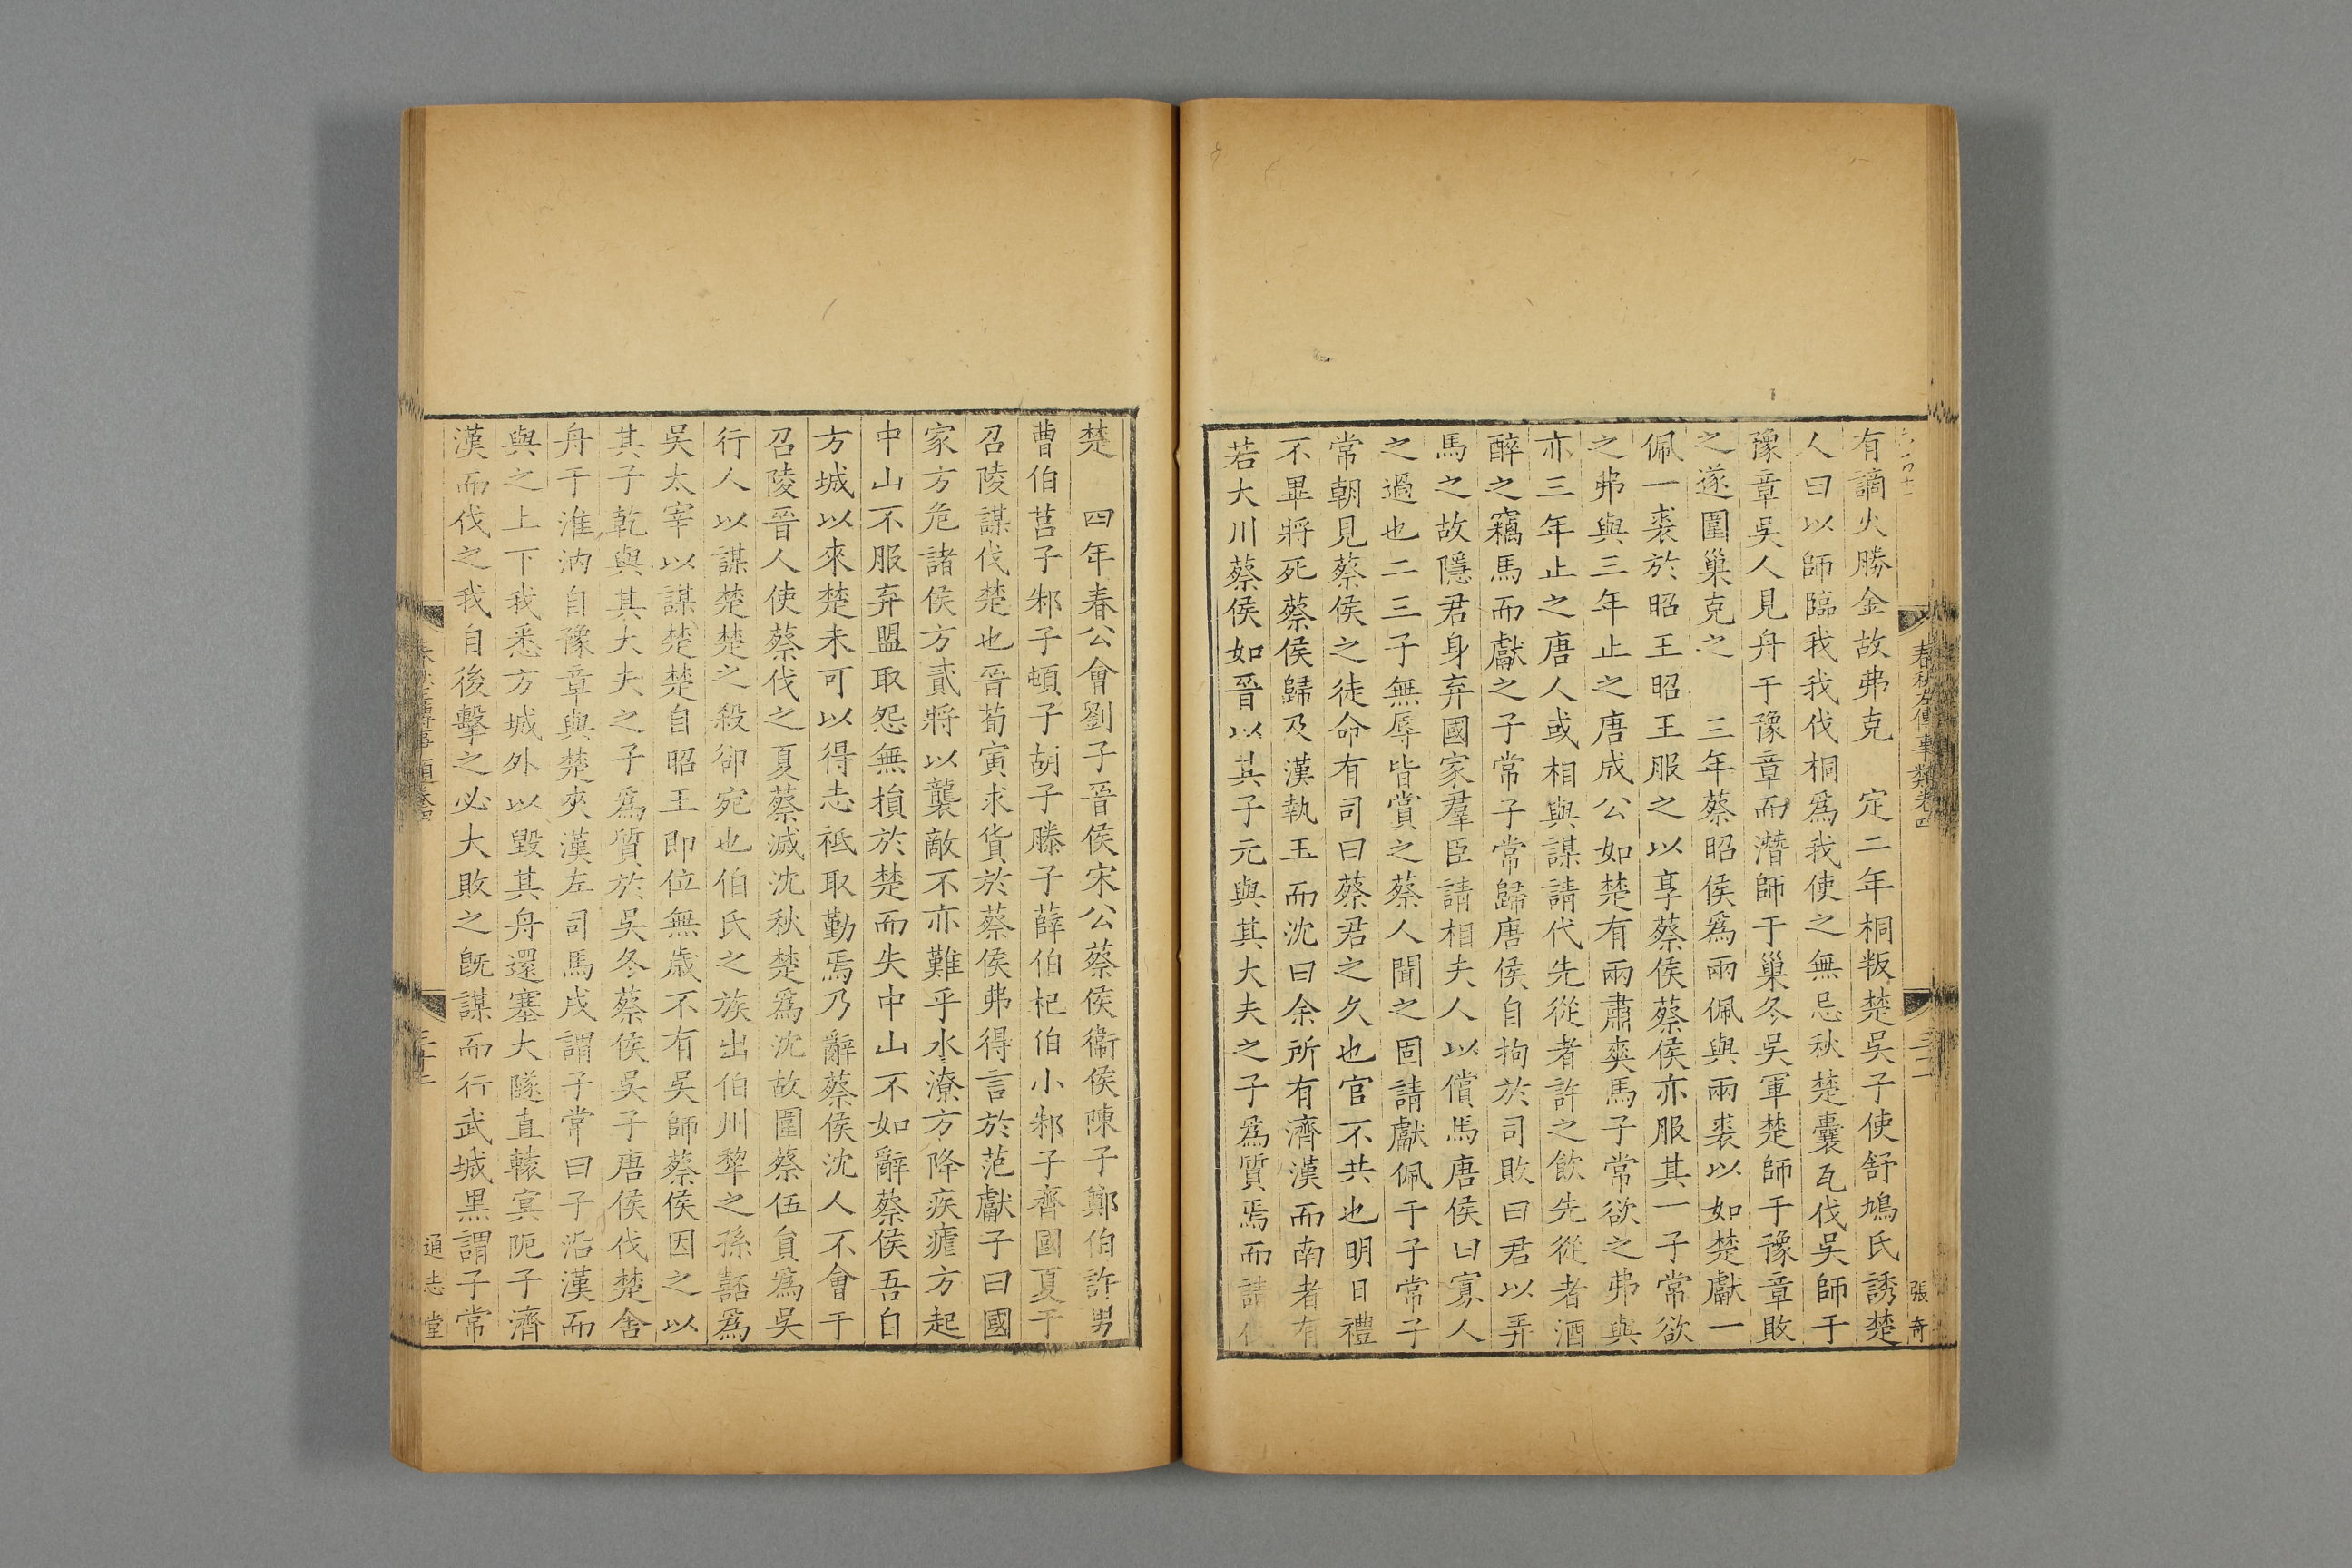 春秋左傳事類卷四
張奇
有謫火勝金故弗克　定二年桐叛楚吳子使舒鳩氏誘楚
人曰以師臨我我伐桐爲我使之無忌秋楚囊瓦伐吳師于
豫章吳人見舟于豫章而潛師于巢冬吳軍楚師于豫章敗
之遂圍巢克之　三年蔡昭侯爲兩佩與兩裘以如楚獻一
佩一裘於昭王昭王服之以享蔡侯蔡侯亦服其一子常欲
之弗與三年止之唐成公如楚有兩肅爽馬子常欲之弗與
亦三年止之唐人或相與謀請代先從者許之飲先從者酒
醉之竊馬而獻之子常子常歸唐侯自拘於司敗曰君以弄
馬之故隱君身弃國家羣臣請相夫人以償馬唐侯曰寡人
之過也二三子無辱皆賞之蔡人聞之固請獻佩于子常子
常朝見蔡侯之徒命有司曰蔡君之久也官不共也明日禮
不畢將死蔡侯歸及漢執玉而沈曰余所有濟漢而南者有
若大川蔡侯如晉以其子元與其大夫之子爲質焉而請
楚　四年春公會劉子晉侯宋公蔡侯衞侯陳子鄭伯許男
曹伯莒子邾子頓子胡子滕子薛伯杞伯小邾子齊國夏于
召陵謀伐楚也晉荀寅求貨於蔡侯弗得言於范獻子曰國
家方危諸侯方貳將以襲敵不亦難乎水潦方降疾瘧方起
中山不服弃盟取怨無損於楚而失中山不如辭蔡侯吾自
方城以來楚未可以得志祗取勤焉乃辭蔡侯沈人不會于
召陵晉人使蔡伐之夏蔡滅沈秋楚爲沈故圍蔡伍員爲吳
行人以謀楚楚之殺卻宛也伯氏之族出伯州犂之孫嚭爲
吳太宰以謀楚楚自昭王即位無歲不有吳師蔡侯因之以
其子乾與其大夫之子爲質於吳冬蔡侯吳子唐侯伐楚舍
舟于淮汭自豫章與楚夾漢左司馬戌謂子常曰子沿漢而
與之上下我悉方城外以毀其舟還塞大隧直轅冥阨子濟
漢而伐之我自後擊之必大敗之既謀而行武城黑謂子常
通志堂